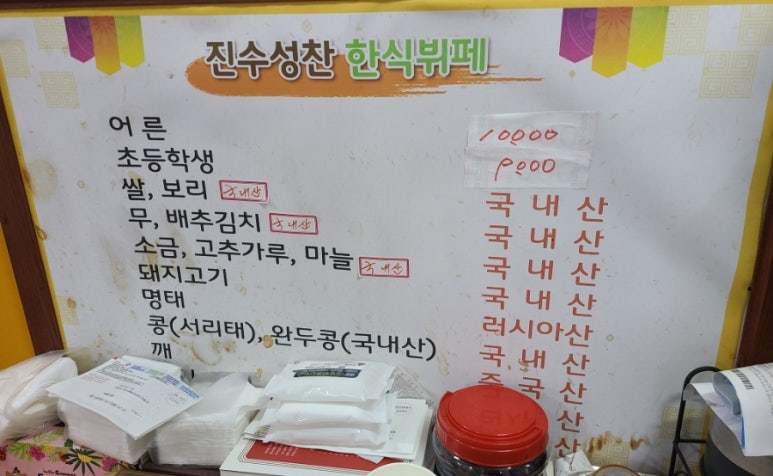 진수성찬 한식뷔페
어 른 10000
초등학생 9000
쌀, 보리 국내산 국 내 산
무, 배추김치 국내산 국 내 산
소금, 고추가루, 마늘 국내산 국 내 산
돼지고기 국 내 산
명태 러시아산
콩(서리태), 완두콩(국내산) 국 내 산
깨 국 산
산
산